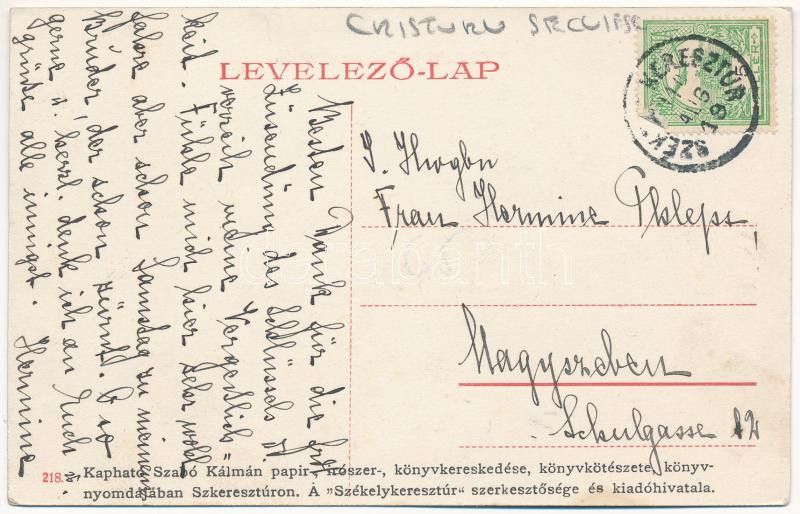 CRISTURU SECUIESC
LEVELEZŐ-LAP
SZÉK. KERESZTÚR
Besten Dank für die frdl.
Zusendung des Schlüssels u.
verzeih meine Vergeßlich-
keit. Fühle mich hier sehr wohl
fahre aber schon Samstag zu meinem
Bruder, der schon zürnt. So
gerne u. herzl. denk ich an Euch u.
grüße alle innigst. Hermine
Frau Hermine
Magyszeben
Schulgasse 12
218. Kapható Szabó Kálmán papir-, irószer-, könyvkereskedése, könyvkötészete, könyv-
nyomdájában Szkeresztúron. A "Székelykeresztúr" szerkesztősége és kiadóhivatala.
darabanth